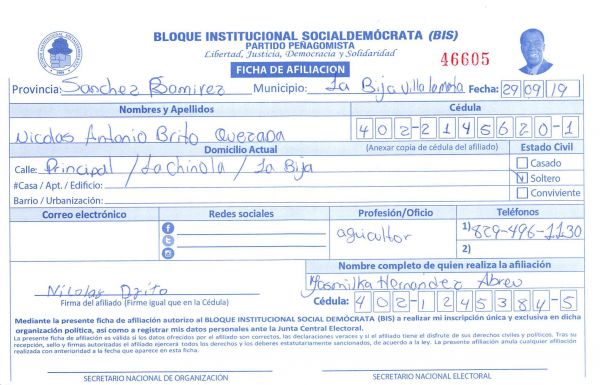 BLOQUE INSTITUCIONAL SOCIALDEMÓCRATA (BIS)
PARTIDO PEÑAGOMISTA
Libertad, Justicia, Democracia y Solidaridad
46605
FICHA DE AFILIACION
Provincia: Sanchez Ramirez Municipio: La Bija Villa la mata Fecha: 29/09/19
Nombres y Apellidos Cédula
Nicolas Antonio Brito Quezada 402-2145620-1
Domicilio Actual (Anexar copia de cédula del afiliado) Estado Civil
Calle: Principal / La chinola / La Bija Casado
#Casa / Apt. / Edificio: Soltero
Barrio / Urbanización: Conviviente
Correo electrónico Redes sociales Profesión/Oficio Teléfonos
aguicultor 1) 829-496-1130
2)
Nombre completo de quien realiza la afiliación
Nicolas Brito Yasmilka Hernandez Abreu
Firma del afiliado (Firme igual que en la Cédula) Cédula: 402-1245384-5
Mediante la presente ficha de afiliación autorizo al BLOQUE INSTITUCIONAL SOCIAL DEMÓCRATA (BIS) a realizar mi inscripción única y exclusiva en dicha
organización política, así como a registrar mis datos personales ante la Junta Central Electoral.
La presente ficha de afiliación es válida si los datos ofrecidos por el afiliado son correctos, las declaraciones veraces y si el afiliado tiene el disfrute de sus derechos civiles y políticos. Tras su
recepción, sello y firmas autorizadas el afiliado ejercerá todos los derechos y los deberes estatutarios sancionados, de acuerdo a la ley. La presente afiliación anula cualquier afiliación
realizada con anterioridad a la fecha que aparece en esta ficha.
SECRETARIO NACIONAL DE ORGANIZACIÓN SECRETARIO NACIONAL ELECTORAL